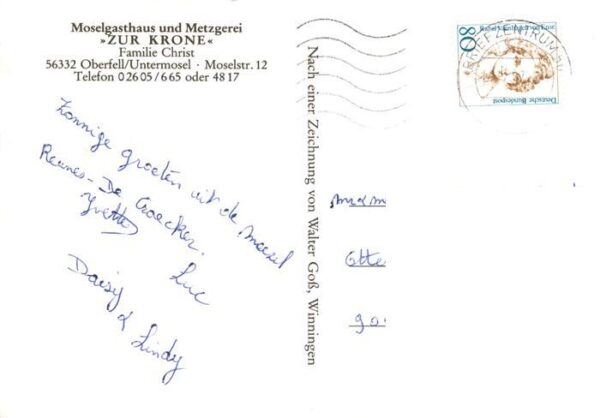 Moselgasthaus und Metzgerei
»ZUR KRONE«
Familie Christ
56332 Oberfell/Untermosel · Moselstr. 12
Telefon 0 26 05 / 6 65 oder 48 17
zonnige groeten uit de moezel
Reunes - De Croecker.
Yvette Luc
Daisy
& Lindy
Nach einer Zeichnung von Walter Goß, Winningen
80
Deutsche Bundespost
BRIEFZENTRUM
Otte